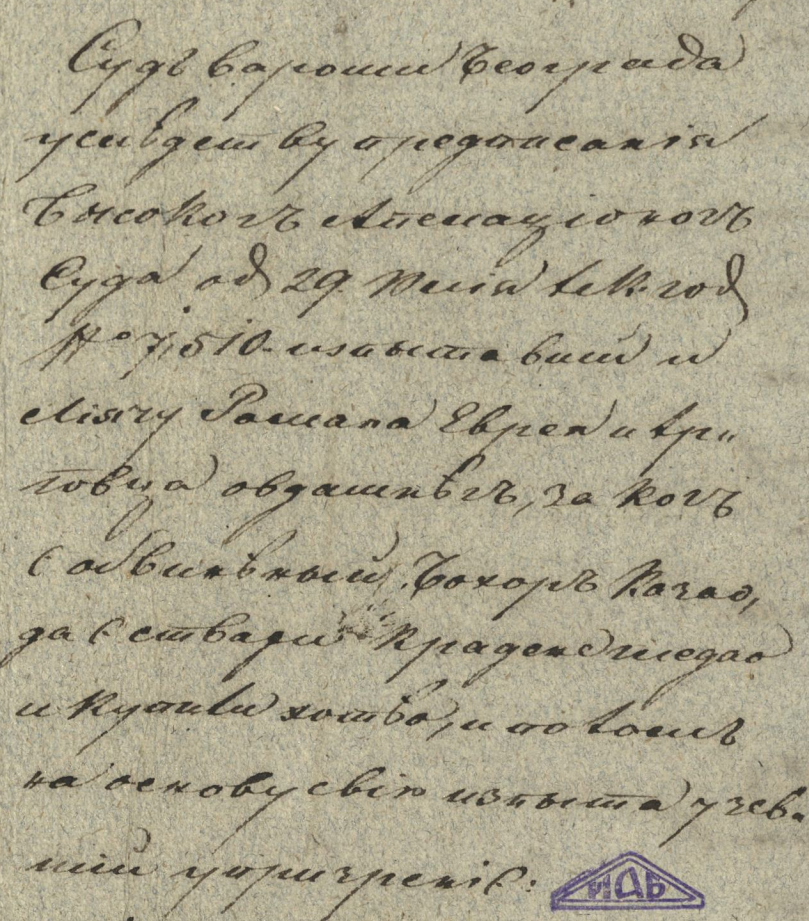 Судъ вароши Београда
у слѣдству предписанія
Высокогъ Апелаціоногъ
Суда од 29 Юлія тек. год
№ 7,510. испытавши и
Іліячу Романа Евреи и тр„
говца овдашнѣгъ, за когъ
є обвинѣный Бохоръ Казао,
да є ствари крадене гледао
и купити хотѣо, и по томъ
на основу свію испыта узев„
ши у призреніє:
ИАБ